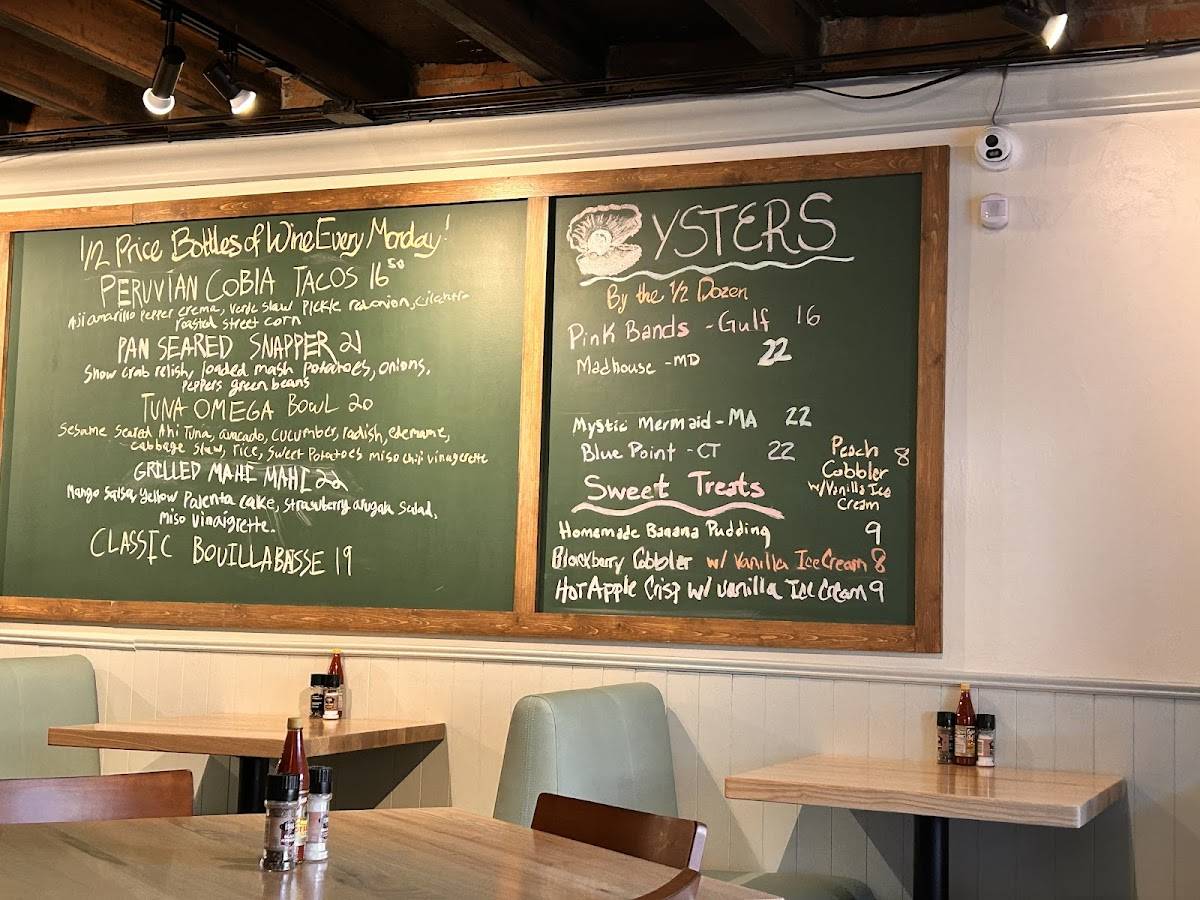 1/2 Price Bottles of Wine Every Monday!
PERUVIAN COBIA TACOS 16 50
Aji amarillo pepper crema, verde slaw pickle red onion, cilantro
roasted street corn
PAN SEARED SNAPPER 21
Snow crab relish, loaded mash potatoes, onions,
peppers green beans
TUNA OMEGA BOWL 20
Sesame seared Ahi Tuna, avocado, cucumber, radish, edemame,
cabbage slaw, rice, sweet potatoes miso chili vinagerette
GRILLED MAHI MAHI 22
Mango salsa, yellow Palenta cake, strawberry arugala salad,
miso vinaigrette.
CLASSIC BOUILLABAISSE 19
OYSTERS
By the 1/2 Dozen
Pink Bands - Gulf 16
Madhouse - MD 22
Mystic Mermaid - MA 22
Blue Point - CT 22
Sweet Treats
Peach 8
Cobbler
w/Vanilla Ice
Cream
Homemade Banana Pudding 9
Blackberry Cobbler w/ Vanilla Ice Cream 8
Hot Apple Crisp w/ vanilla Ice Cream 9